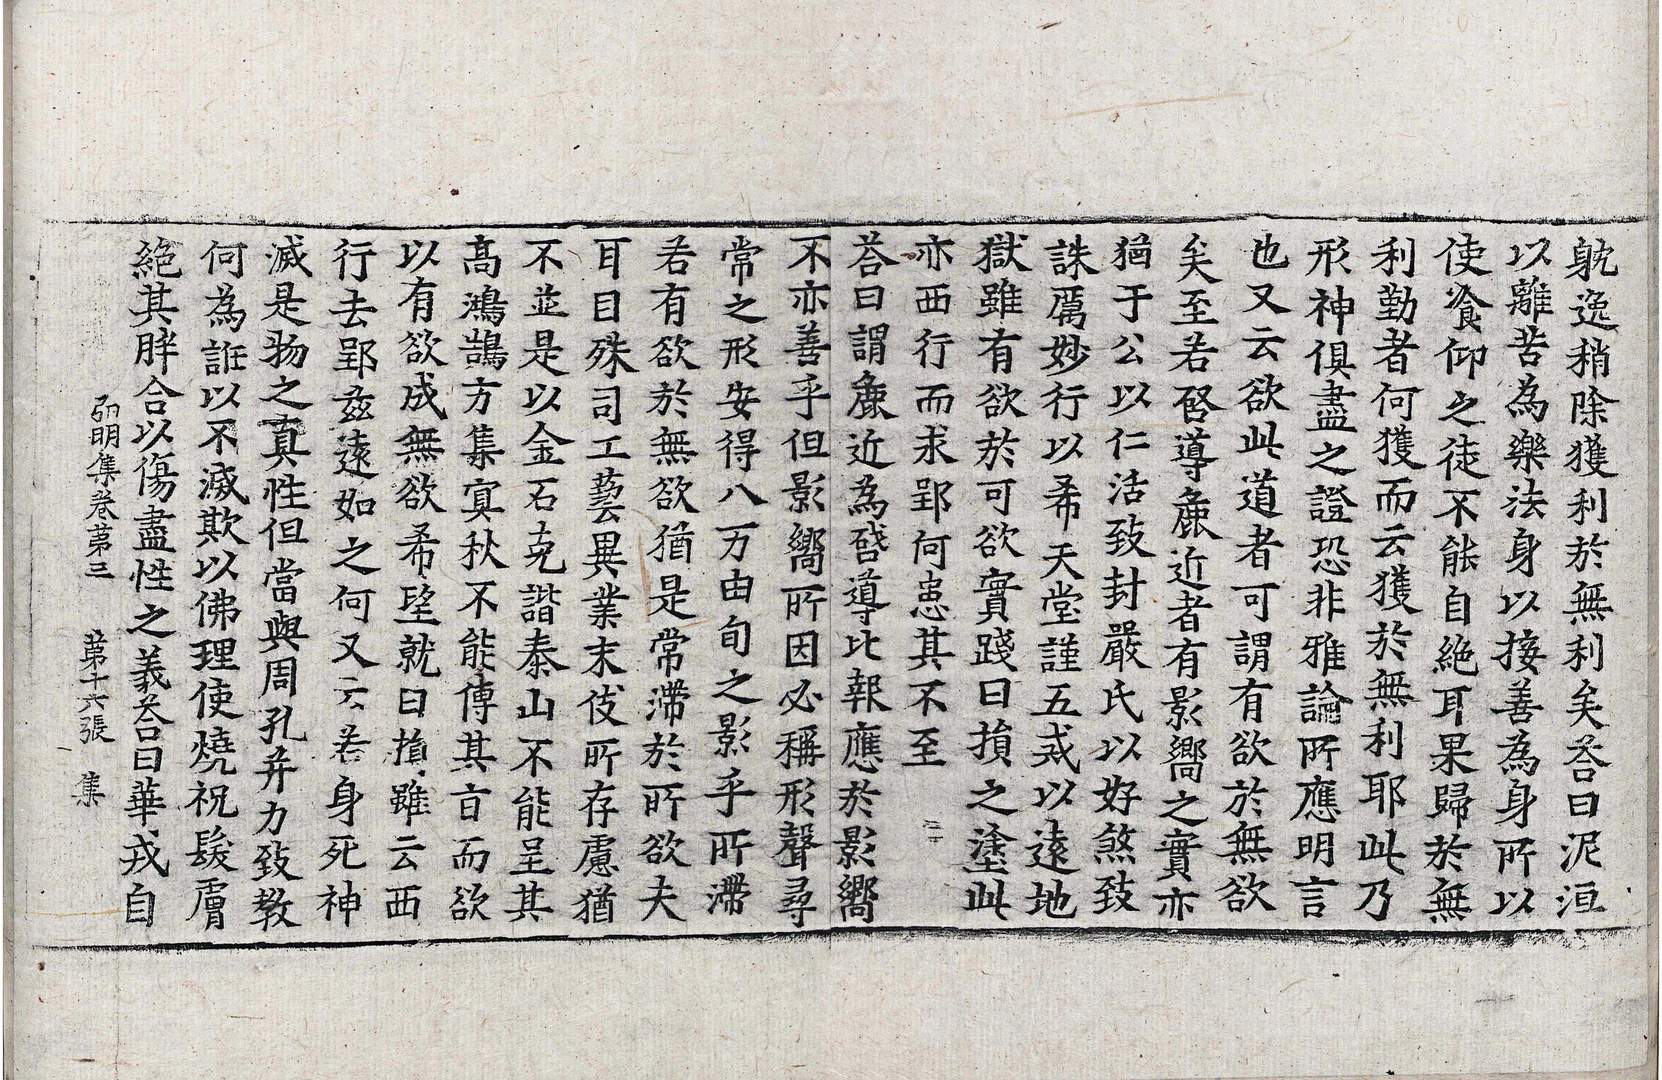 躭逸稍除獲利於無利矣荅曰泥洹
以離苦為樂法身以接善為身所以
使飡仰之徒不能自絕耳果歸於無
利勤者何獲而云獲於無利耶此乃
形神俱盡之證恐非雅論所應明言
也又云欲此道者可謂有欲於無欲
矣至若啓導麁近者有影嚮之實亦
猶于公以仁活致封嚴氏以好煞致
誅厲妙行以希天堂謹五戒以遠地
獄雖有欲於可欲實踐曰損之塗此
亦西行而求郢何患其不至
荅曰謂麁近為啓導比報應於影嚮
不亦善乎但影嚮所因必稱形聲尋
常之形安得八万由旬之影乎所滯
若有欲於無欲猶是常滯於所欲夫
耳目殊司工藝異業末伎所存慮猶
不並是以金石克諧泰山不能呈其
高鴻鵠方集冥秋不能傳其旨而欲
以有欲成無欲希望就曰損雖云西
行去郢茲遠如之何又云若身死神
滅是物之真性但當與周孔并力致教
何為誑以不滅欺以佛理使燒祝髮膚
絕其胖合以傷盡性之義荅曰華戎自
弘明集卷第三 第十六張 集